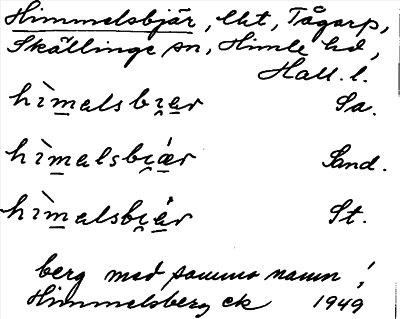 Himmelsbjär, lht, Tågarp,
Skällinge sn, Himle hd,
Hall. l.
hìm̲alsbi̯a̲r Sa.
hìm̲alsbi̯á̲r Sand.
hìm̲alsbi̯å̲r St.
berg med samma namn!
Himmelsberg ek 1949